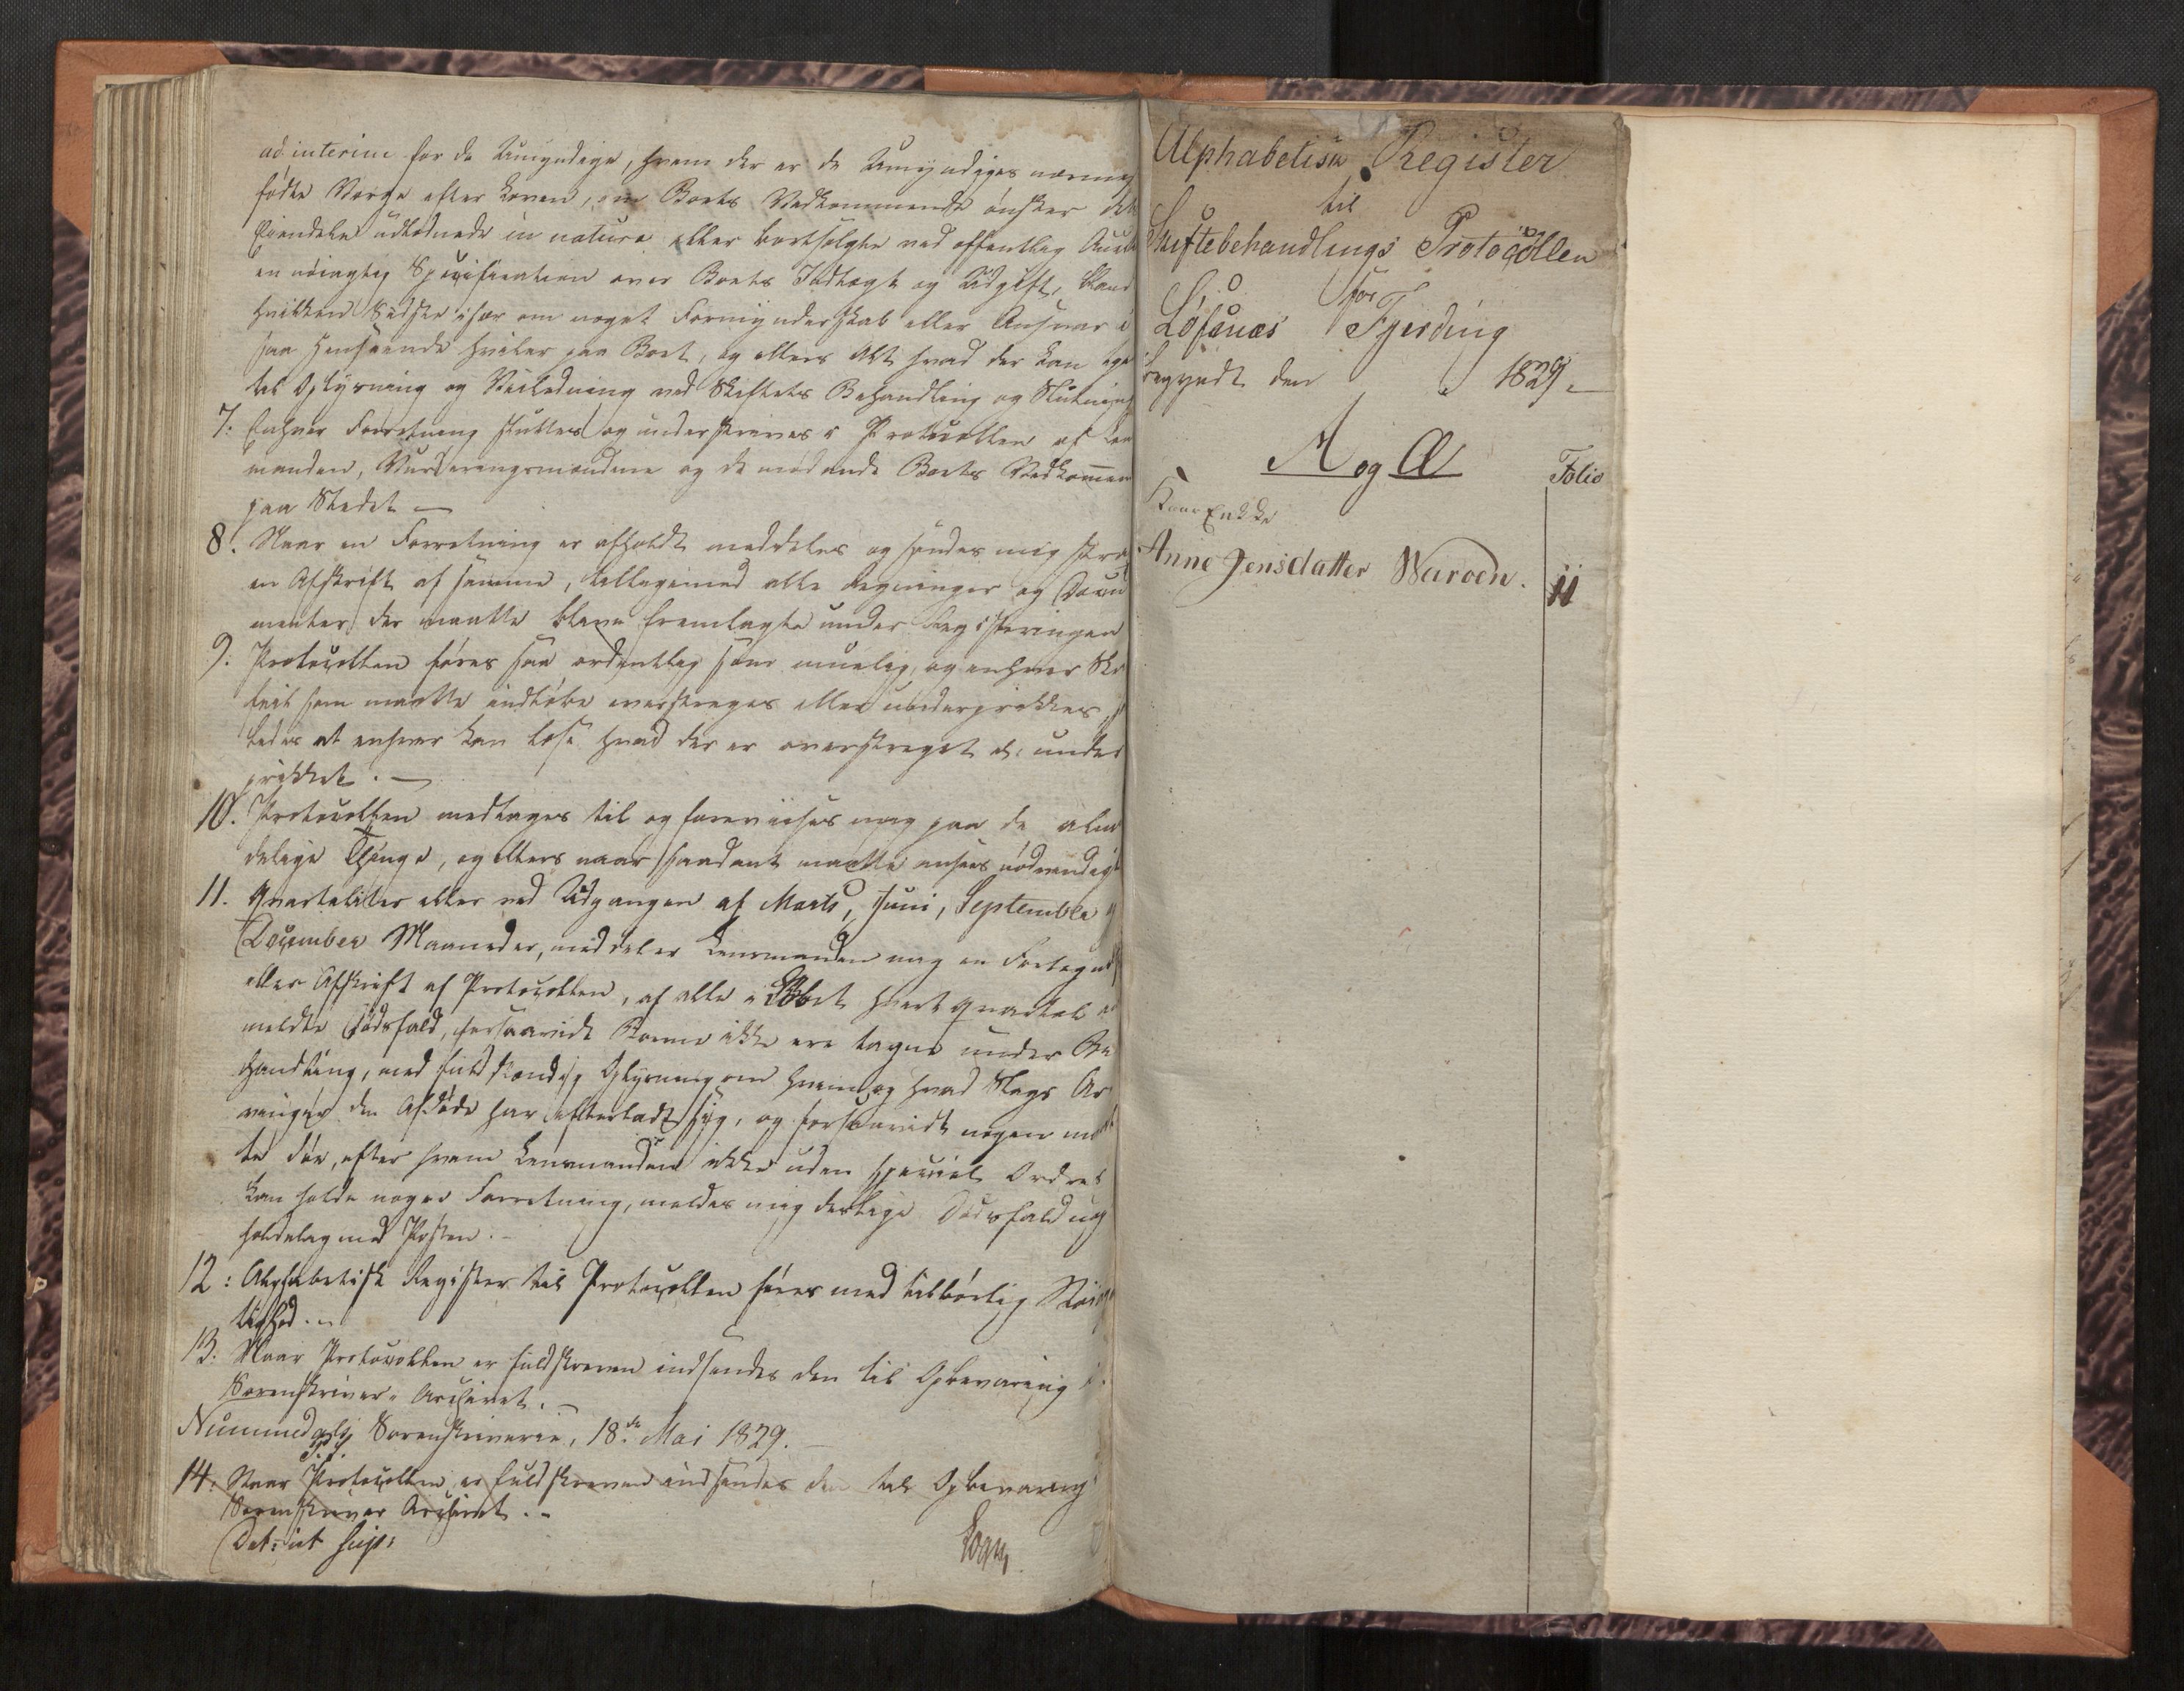 ad interim for de Umyndige, hvem der er de Umyndiges nærmest
fødte Værge efter Loven, om Boets Vedkommende ønsker dets
Eiendele udlodnede in natura eller bortsolgte ved offentlig Auct
en nöiagtig Specification over Boets Indtægt og Udgift, 
hvilken Sidste især om noget Formynderskab eller Ansvar i
saa Henseende hviler paa Boet, og ellers Alt hvad der kan 
til Oplysning og Veiledning ved Skiftets Behandling og Slutning
7. Enhver Forretning sluttes og underskrives i Protocollen af Len
manden, Vurderingsmændene og de mødende Boets Vedkommen
paa Stedet —
8. Naar en Forretning er afholdt meddeles og sendes mig strax
en Afskrift af samme, tilligemed alle Regninger og Docu
menter der maatte blive fremlagte under Registeringen
9. Protocollen føres saa ordentlig som muelig, og enhver Skr
feil som maatte indløbe overstreges eller underprikkes, 
ledes at enhver kan læse hvad der er overstreget el: under
prikket. —
10. Protocollen medtages til og foreviises mig paa de almin
delige Thinge, og ellers naar saadant maatte ansees nødvendigt
11. Qvartaliter eller ved Udgangen af Marts, Juni, September og
December Maaneder, meddeler Lensmanden mig en Fortegnelse
eller Afskrift af Protocollen, af alle i Løbet hvert Qvartal an
meldte Dødsfald, forsaavidt Boerne ikke ere tagne under Be
handling, med fuldstændig Oplysning om hvem og hvad Slags Ar
vinger den Afdøde har efterladt sig, og forsaavidt nogen maat
te døe, efter hvem Lensmanden ikke uden special Ordre
kan holde nogen Forretning, meldes mig deslige Dødsfald 
holdelag med Posten. -
12: Alphabetisk Register til Protocollen føres med tilbørlig Nøiag
tighed. -
13. Naar Protocollen er fuldskreven indsendes den til Opbevaring i
Sorenskriver-Archivet. —
Nummedals Sorenskriverie, 18de Mai 1829. —
14. Naar Protocollen er fuldskreven indsendes den til Opbevaring i
Sorenskriver Archivet. -
Dat: ut sup:
Alphabetisk Register
til
Skiftebehandlings Protocollen
for
Løfsnæs Fjerding
begyndt den 1829. —
A og Æ
Folio
Enkke
Anne Jensdatter Waroen. 11